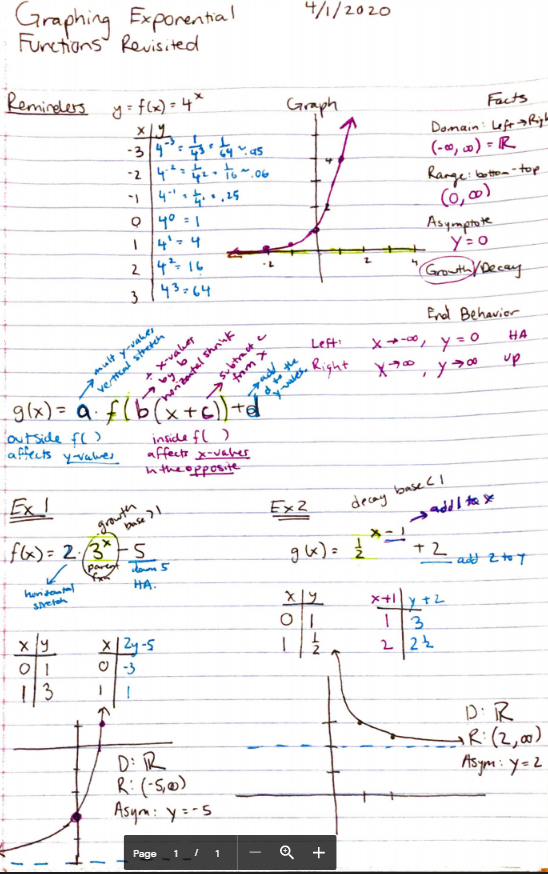 Graphing Exponential 4/1/2020
Functions Revisited
Reminders y = f(x) = 4^x Graph Facts
x | y
-3 | 4^-3 = 1/4^3 = 1/64 ~ .05
-2 | 4^-2 = 1/4^2 = 1/16 ~ .06
-1 | 4^-1 = 1/4 = .25
0 | 4^0 = 1
1 | 4^1 = 4
2 | 4^2 = 16
3 | 4^3 = 64
4
2
-2 2 4
Domain: Left → Righ
(-∞, ∞) = ℝ
Range: bottom-top
(0, ∞)
Asymptote
y = 0
Growth/Decay
End Behavior
Left: x → -∞, y = 0 HA
Right x → ∞, y → ∞ up
mult y-values
vertical stretch
÷ x-values
by b
horizontal shrink
subtract c
from x
add
d to the
y-values
g(x) = a · f(b(x+c)) + d
outside f( )
affects y-values
inside f( )
affects x-values
in the opposite
Ex 1
growth
base > 1
f(x) = 2 · 3^x - 5
parent
fxn
down 5
HA.
horizontal
stretch
x | y
0 | 1
1 | 3
x | 2y-5
0 | -3
1 | 1
D: ℝ
R: (-5, ∞)
Asym: y = -5
Ex 2
decay base < 1
add 1 to x
g(x) = 1/2^x-1 + 2
add 2 to y
x | y
0 | 1
1 | 1/2
x+1 | y+2
1 | 3
2 | 2 1/2
D: ℝ
R: (2, ∞)
Asym: y = 2
Page 1 / 1 — +